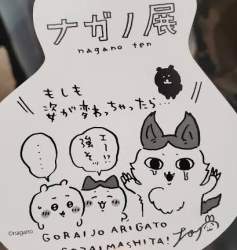 ナガノ展
nagano ten
もしも
姿が変わっちゃったら…
……
エーッ!?
強そっ
©nagano
GORAIJO ARIGATO
GOZAIMASHITA!